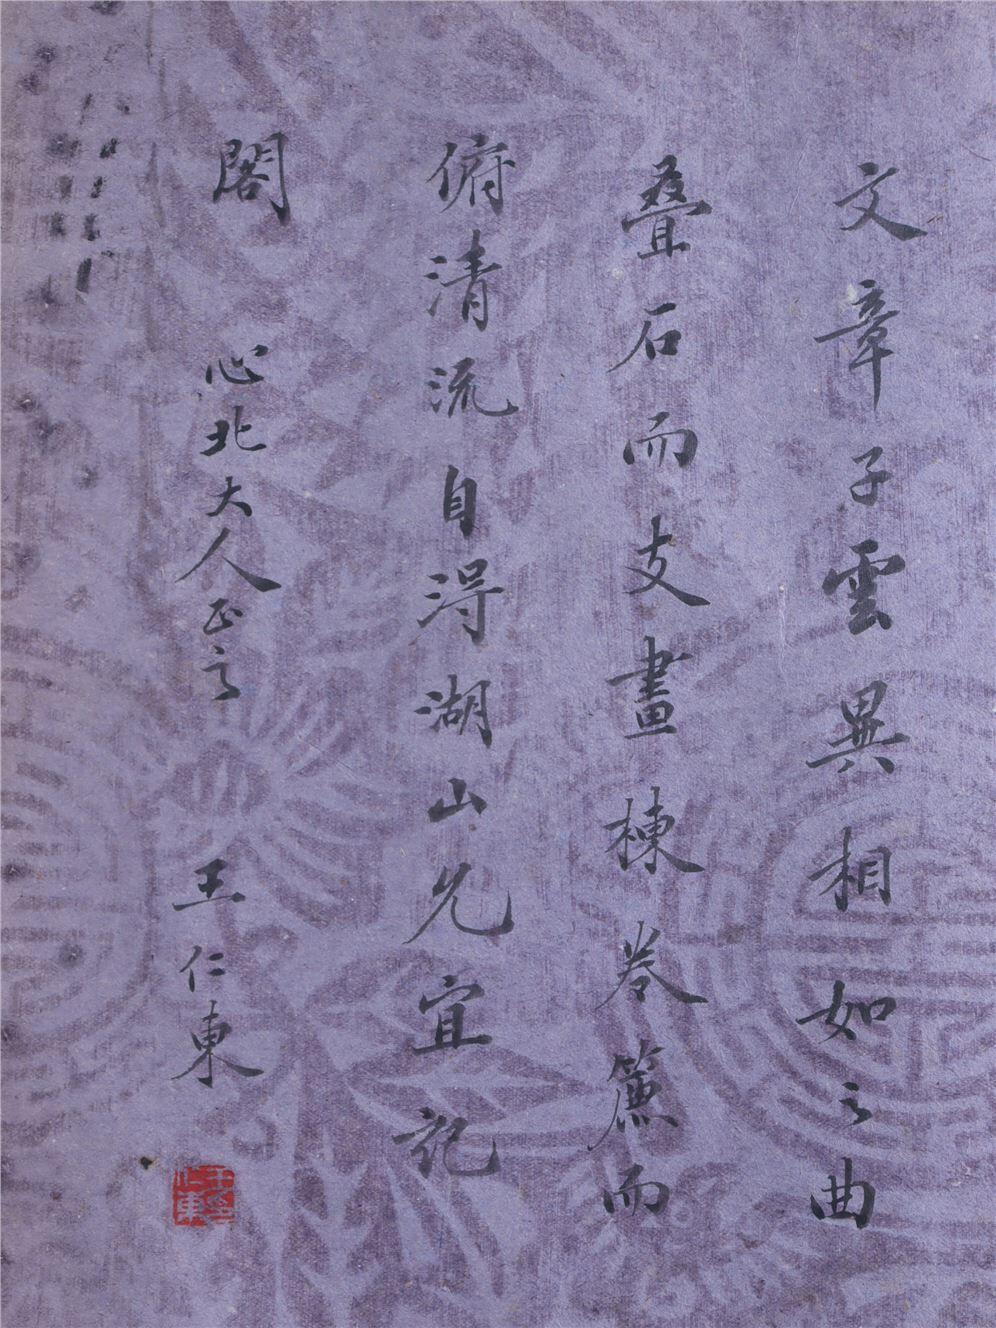 文章子雲異相如之曲
叠石而支畫棟卷簾而
俯清流自得湖山允宜記
閣
心北大人正之
王仁東